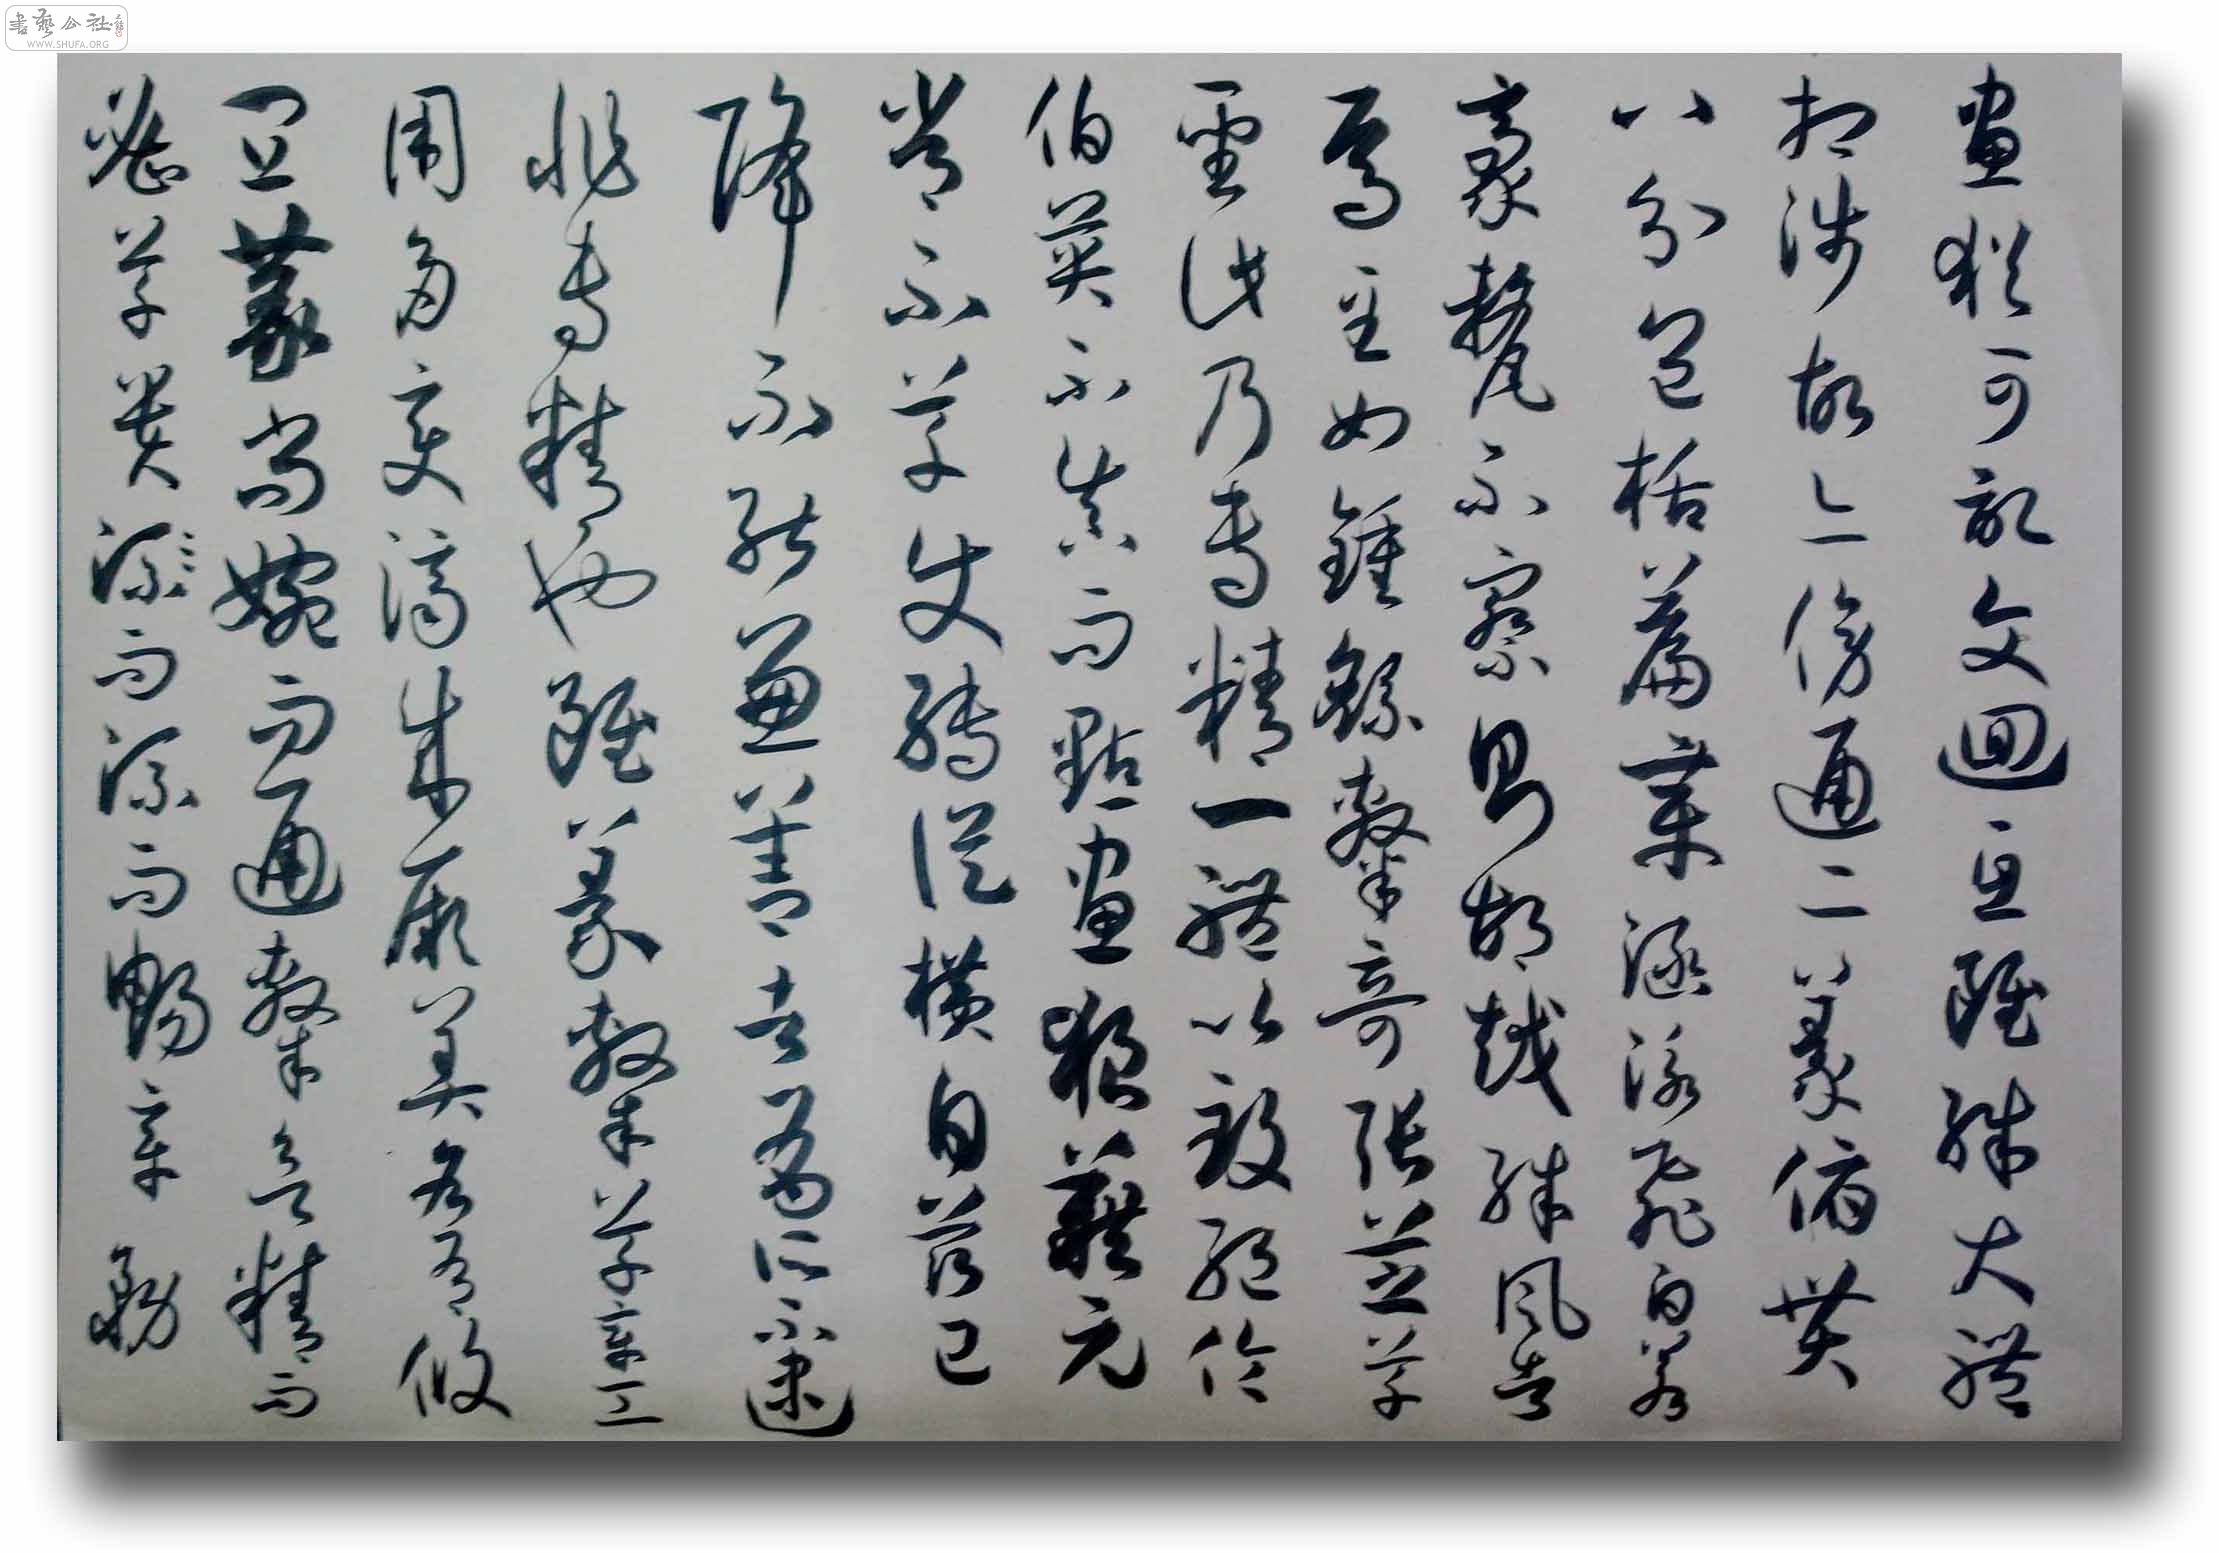 書藝公社
WWW.SHUFA.ORG
畫猶可記文迴互雖殊大體
相涉故亦傍通二篆俯貫
八分包括篇章涵泳飛白若
豪氂不察則胡越殊風者
焉至如鍾繇隸奇張芝草
聖此乃專精一體以致絕倫
伯英不真而點畫狼藉元
常不草使轉縱橫自茲已
降不能兼善者有所不逮
非專精也雖篆隸草章工
用多變濟成厥美各有攸
宜篆尚婉而通隸欲精而
密草貴流而流而暢章務